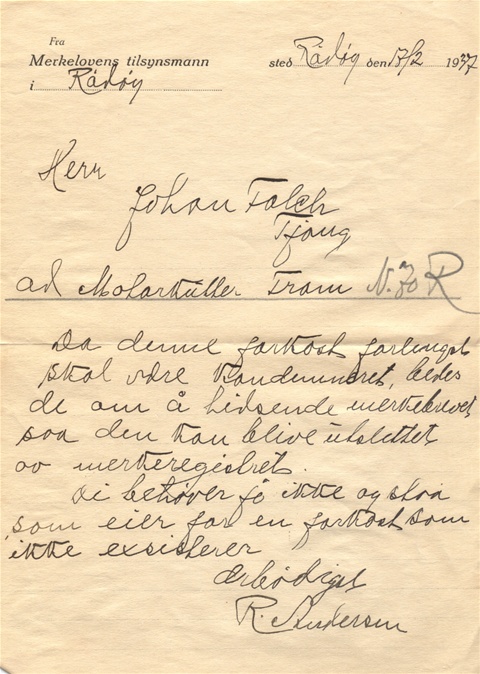 Fra
Merkelovens tilsynsmann
i Rådøy
sted Rådøy den 17/2 1937
Herr
Johan Falch
Tjong
ad Motorkutter Fram N. 30 R
Da denne farkost forlengst
skal være kondemneret, bedes
de om å hidsende merkebrevet
saa den kan blive utslettet
av merkeregistret.
di behøver jo ikke og staa
som eier for en farkost som
ikke exsisterer
ærbødigst
R. Andersen